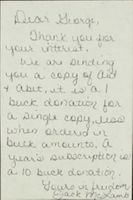 Dear George,
Thank you for
your interest.
We are sending
you a copy of Aid
& Abet, it is a 1
buck donation for
a single copy, less
when ordered in
buck amounts. A
year's subscription is
a 10 buck donation.
Yours in freedom,
Jack McLamb